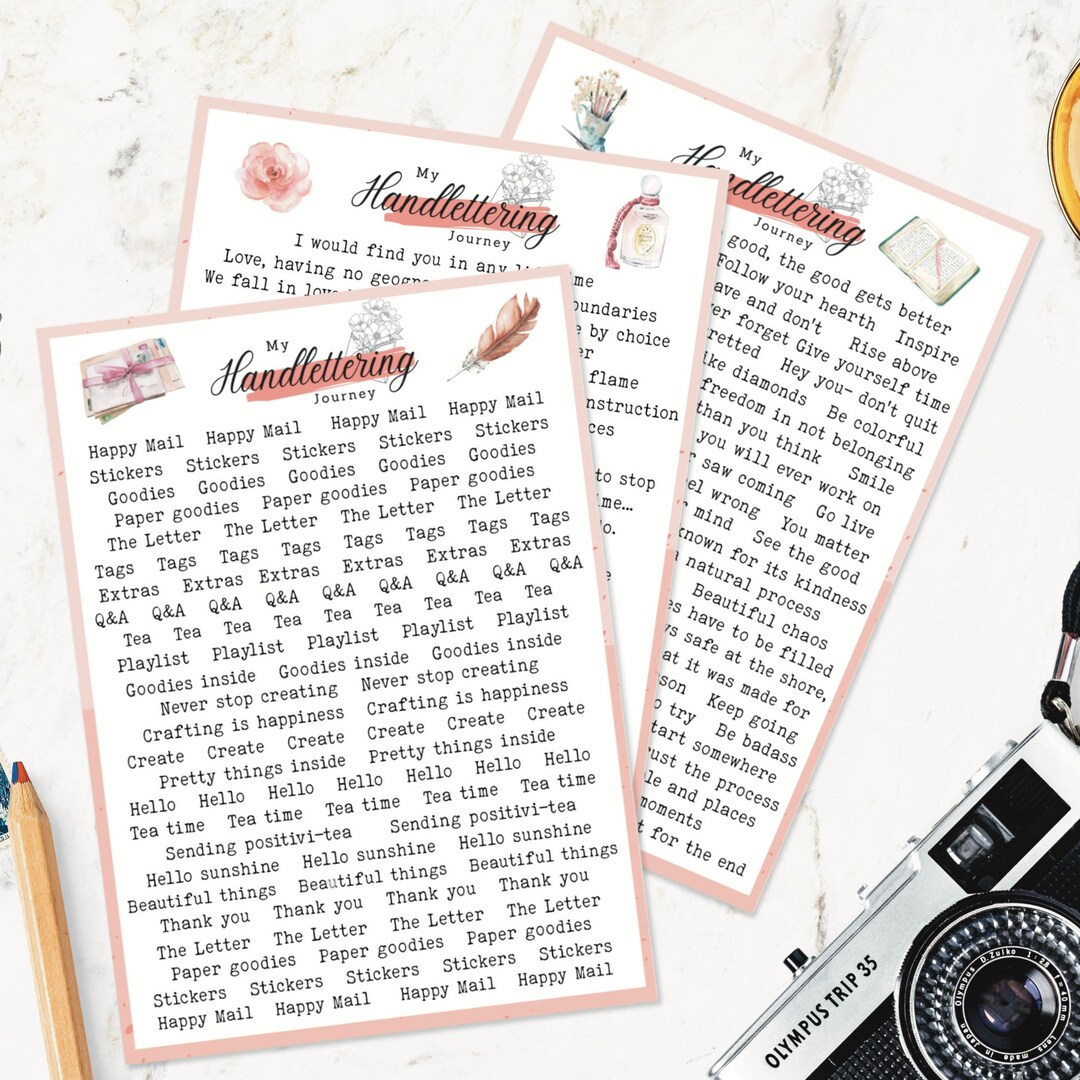 My
Handlettering
Journey
Happy Mail Happy Mail Happy Mail Happy Mail
Stickers Stickers Stickers Stickers Stickers
Goodies Goodies Goodies Goodies Goodies
Paper goodies Paper goodies Paper goodies
The Letter The Letter The Letter The Letter
Tags Tags Tags Tags Tags Tags Tags Tags
Extras Extras Extras Extras Extras Extras
Q&A Q&A Q&A Q&A Q&A Q&A Q&A Q&A Q&A
Tea Tea Tea Tea Tea Tea Tea Tea Tea
Playlist Playlist Playlist Playlist Playlist
Goodies inside Goodies inside Goodies inside
Never stop creating Never stop creating
Crafting is happiness Crafting is happiness
Create Create Create Create Create Create
Pretty things inside Pretty things inside
Hello Hello Hello Hello Hello Hello Hello
Tea time Tea time Tea time Tea time Tea time
Sending positivi-tea Sending positivi-tea
Hello sunshine Hello sunshine Hello sunshine
Beautiful things Beautiful things Beautiful things
Thank you Thank you Thank you Thank you
The Letter The Letter The Letter The Letter
Paper goodies Paper goodies Paper goodies
Stickers Stickers Stickers Stickers Stickers
Happy Mail Happy Mail Happy Mail Happy Mail
My
Handlettering
Journey
I would find you in any
Love, having no
We fall in
by choice
flame
to stop
My
Handlettering
Journey
good, the good gets better
Follow your hearth Inspire
and don't Rise above
forget Give yourself time
Hey you- don't quit
diamonds Be colorful
freedom in not belonging
than you think Smile
you will ever work on
saw coming Go live
wrong You matter
mind See the good
known for its kindness
natural process
Beautiful chaos
have to be filled
safe at the shore,
at it was made for
Keep going
try Be badass
start somewhere
the process
and places
moments
for the end
OLYMPUS TRIP 35
Olympus D.Zuiko 1:2.8 f=40mm Lens made in Japan